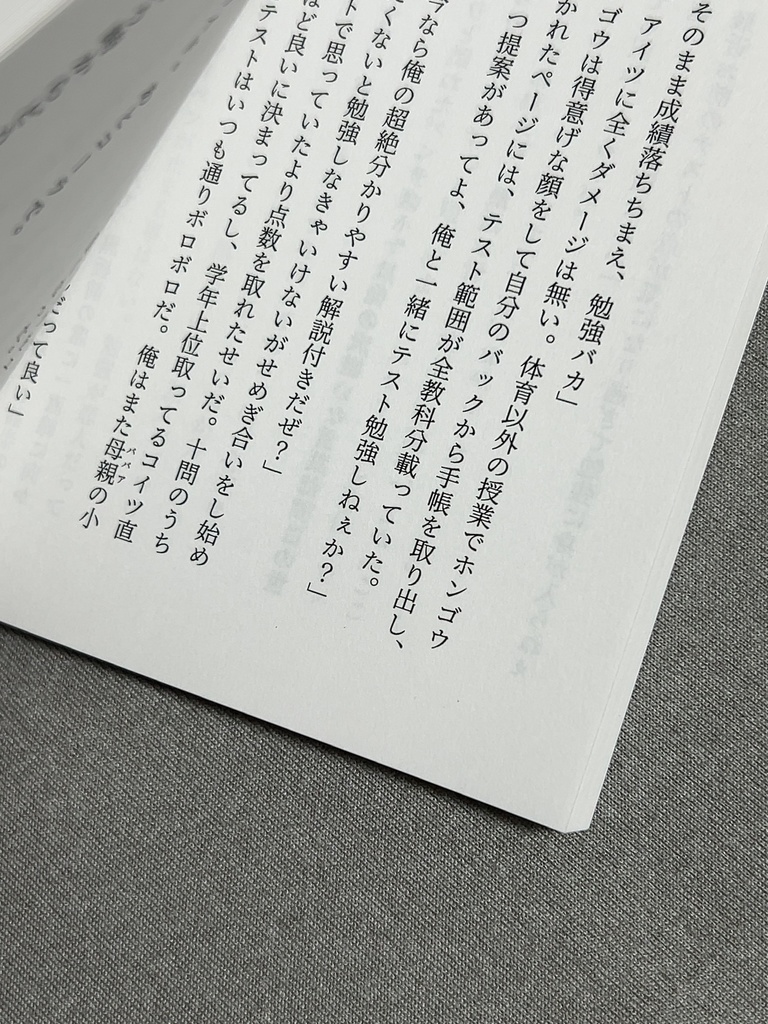 そのまま成績落ちちまえ、勉強バカ」
アイツに全くダメージは無い。体育以外の授業でホンゴウ
ゴウは得意げな顔をして自分のバックから手帳を取り出し、
かれたページには、テスト範囲が全教科分載っていた。
つ提案があってよ、俺と一緒にテスト勉強しねぇか?」
今なら俺の超絶分かりやすい解説付きだぜ?」
くないと勉強しなきゃいけないがせめぎ合いをし始め
トで思っていたより点数を取れたせいだ。十問のうち
ほど良いに決まってるし、学年上位取ってるコイツ直
テストはいつも通りボロボロだ。俺はまた母親ババアの小
だって良い」